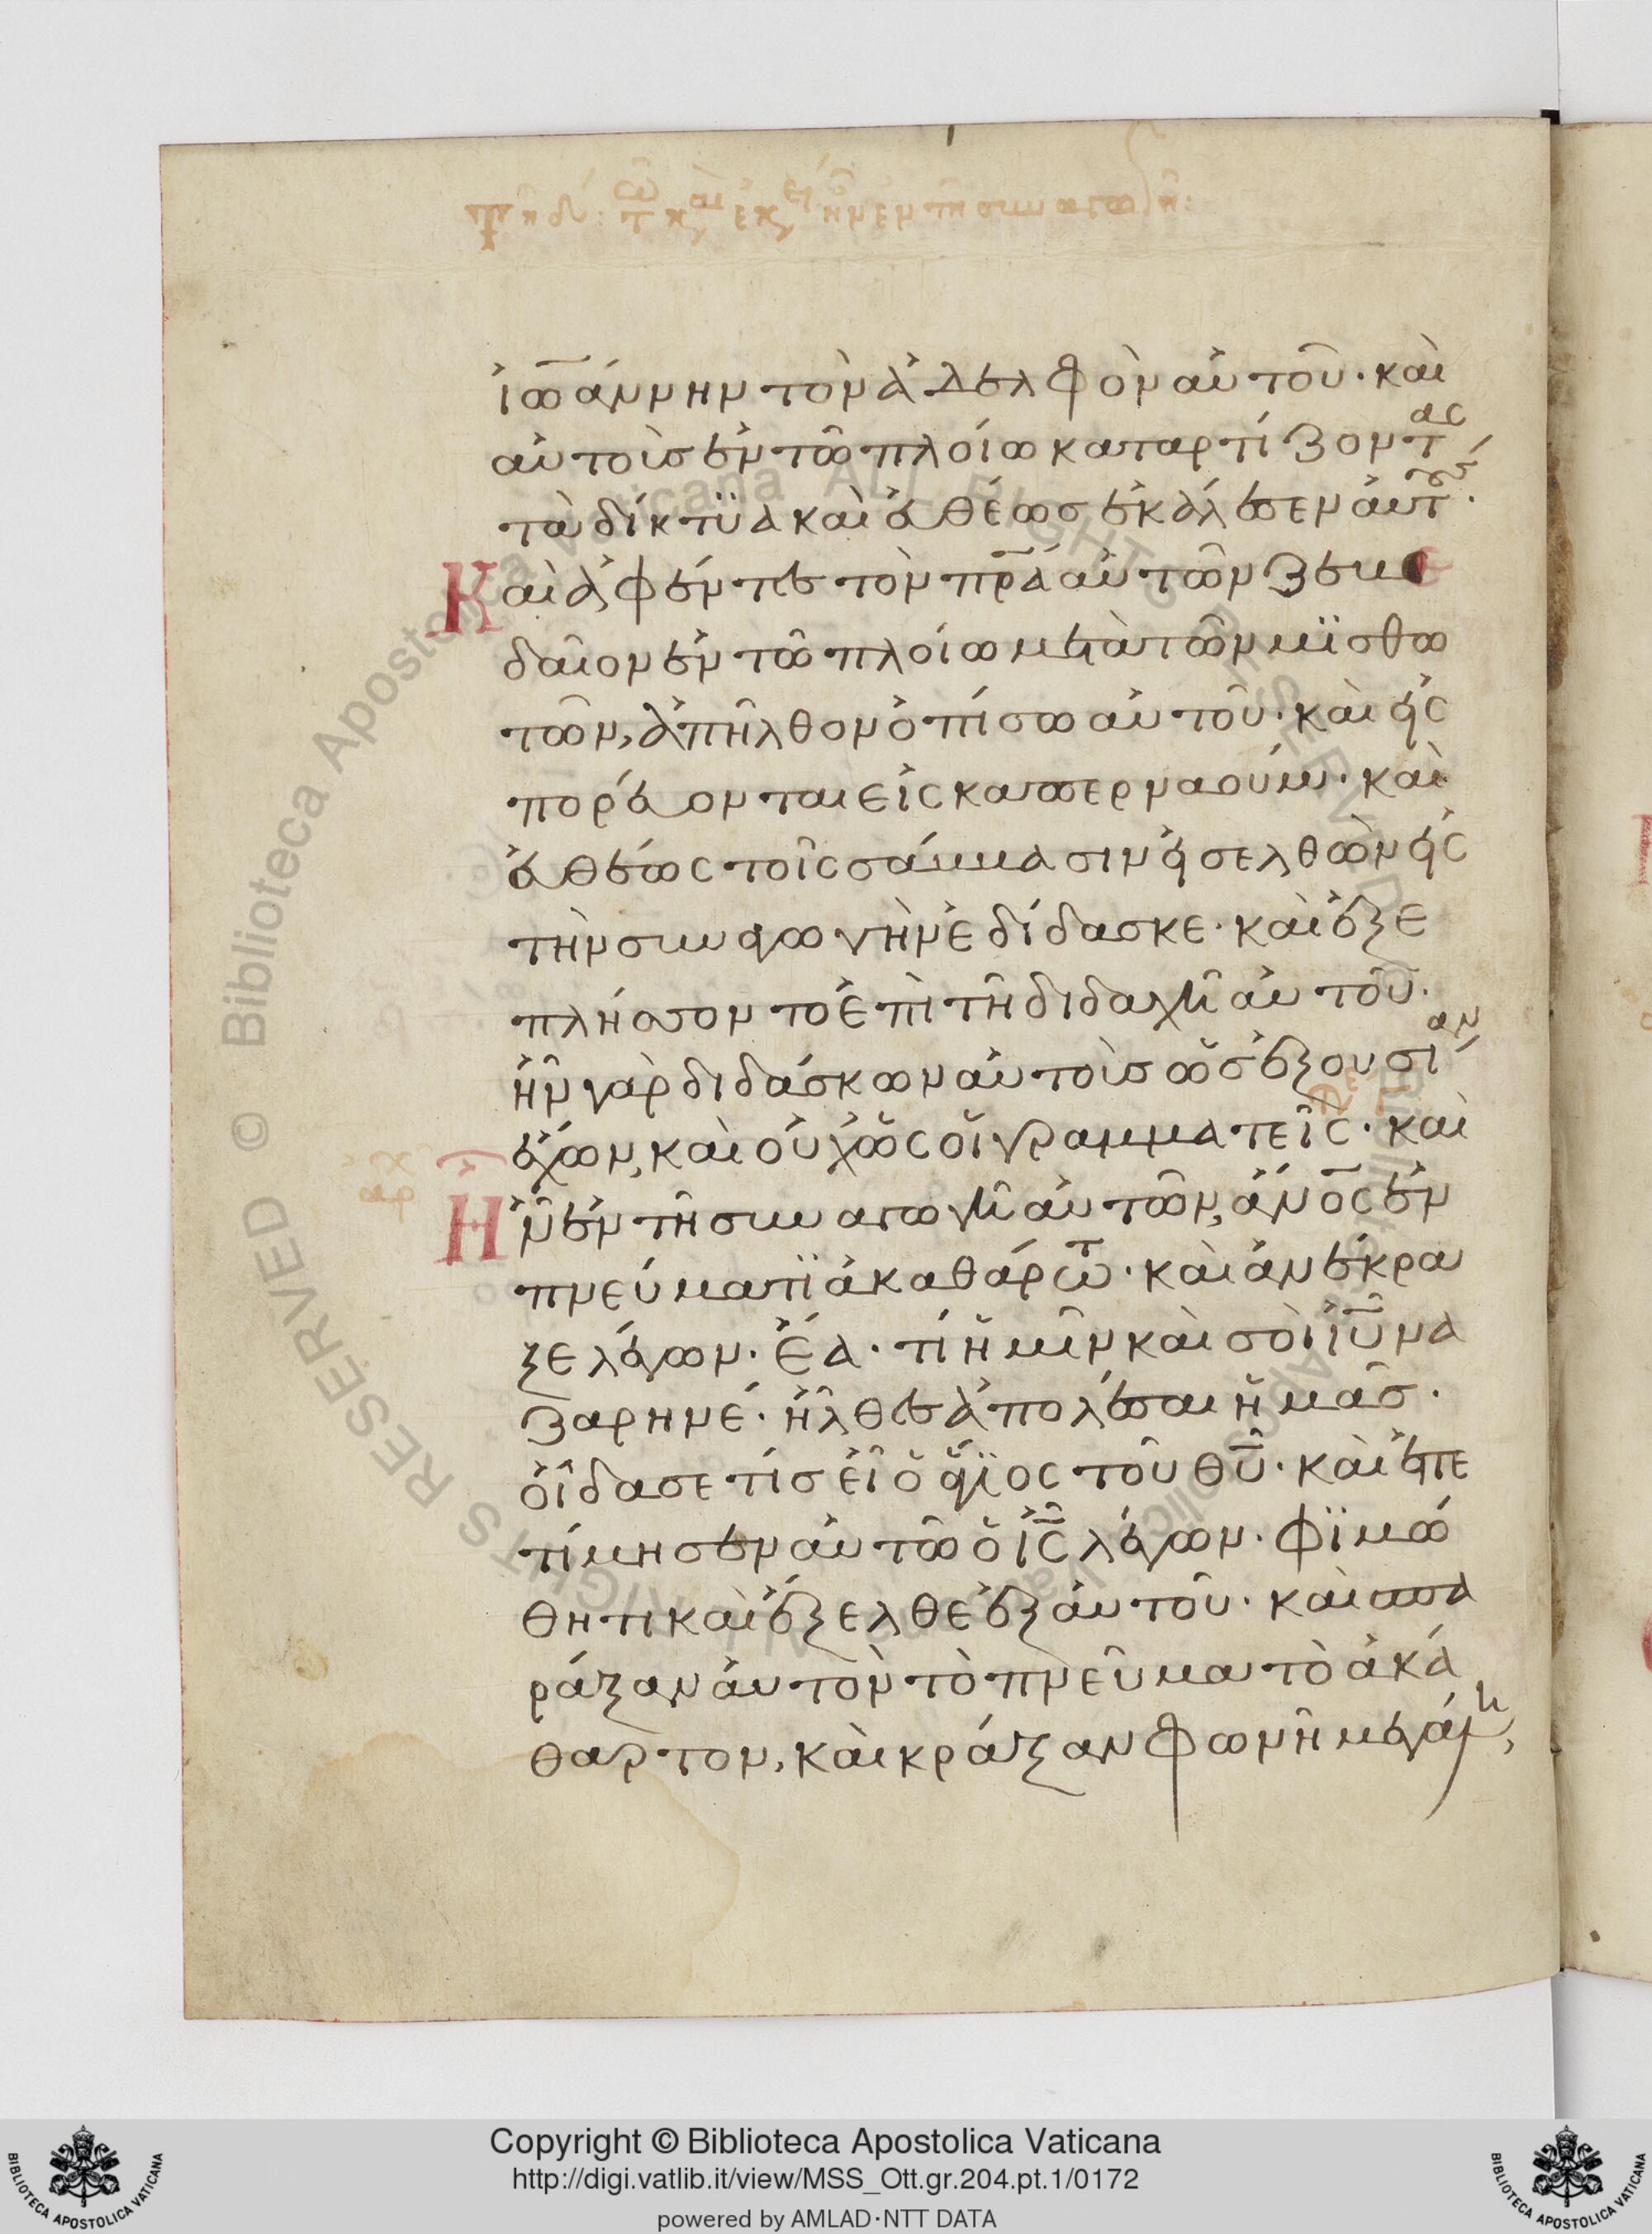 ἰωάννην τὸν ἀδελφὸν αὐτοῦ· καὶ
αὐτοὺσ ἐν τῶ πλοίω καταρτίζοντας
τὰ δίκτϋα καὶ εὐθέωσ ἐκάλεσεν αὐτούς·
Καὶ ἀφέντες τὸν πρα αὐτῶν ζεβε
δαῖον ἐν τῶ πλοίω μετὰ τῶν μϊσθω
τῶν, ἀπῆλθον ὀπίσω αὐτοῦ· καὶ εἰς
πορεύονται εἰς καπερναούμ· καὶ
εὐθέως τοῖς σάββασιν εἰσελθὼν εἰς
τὴν συναγωγὴν ἐδίδασκε· καὶ ἐξε
πλήσσοντο ἐπὶ τῆ διδαχῆ αὐτοῦ·
ἦν γὰρ διδάσκων αὐτοὺσ ὡσ ἐξουσίαν
ἔχων, καὶ οὐχ ὡς οἱ γραμματεῖς· καὶ
Ἦν ἐν τῆ συναγωγῆ αὐτῶν, ἄνος ἐν
πνεύματϊ ἀκαθάρτω· καὶ ἀνέκρα
ξε λέγων· ἔα· τί ἡμῖν καὶ σοὶ ἰυ να
ζαρηνέ· ἦλθες ἀπολέσαι ἡμᾶσ·
οἶδα σε τίσ εἶ ὁ ἅγϊος τοῦ θυ· καὶ ἐπε
τίμησεν αὐτῶ ὁ ις λέγων· φϊμώ
θητι καὶ ἔξελθε ἐξ αὐτοῦ· καὶ σπα
ράξαν αὐτὸν τὸ πνεῦμα τὸ ἀκά
θαρτον, καὶ κράξαν φωνῆ μεγάλη,
Copyright © Biblioteca Apostolica Vaticana
http://digi.vatlib.it/view/MSS_Ott.gr.204.pt.1/0172
powered by AMLAD·NTT DATA